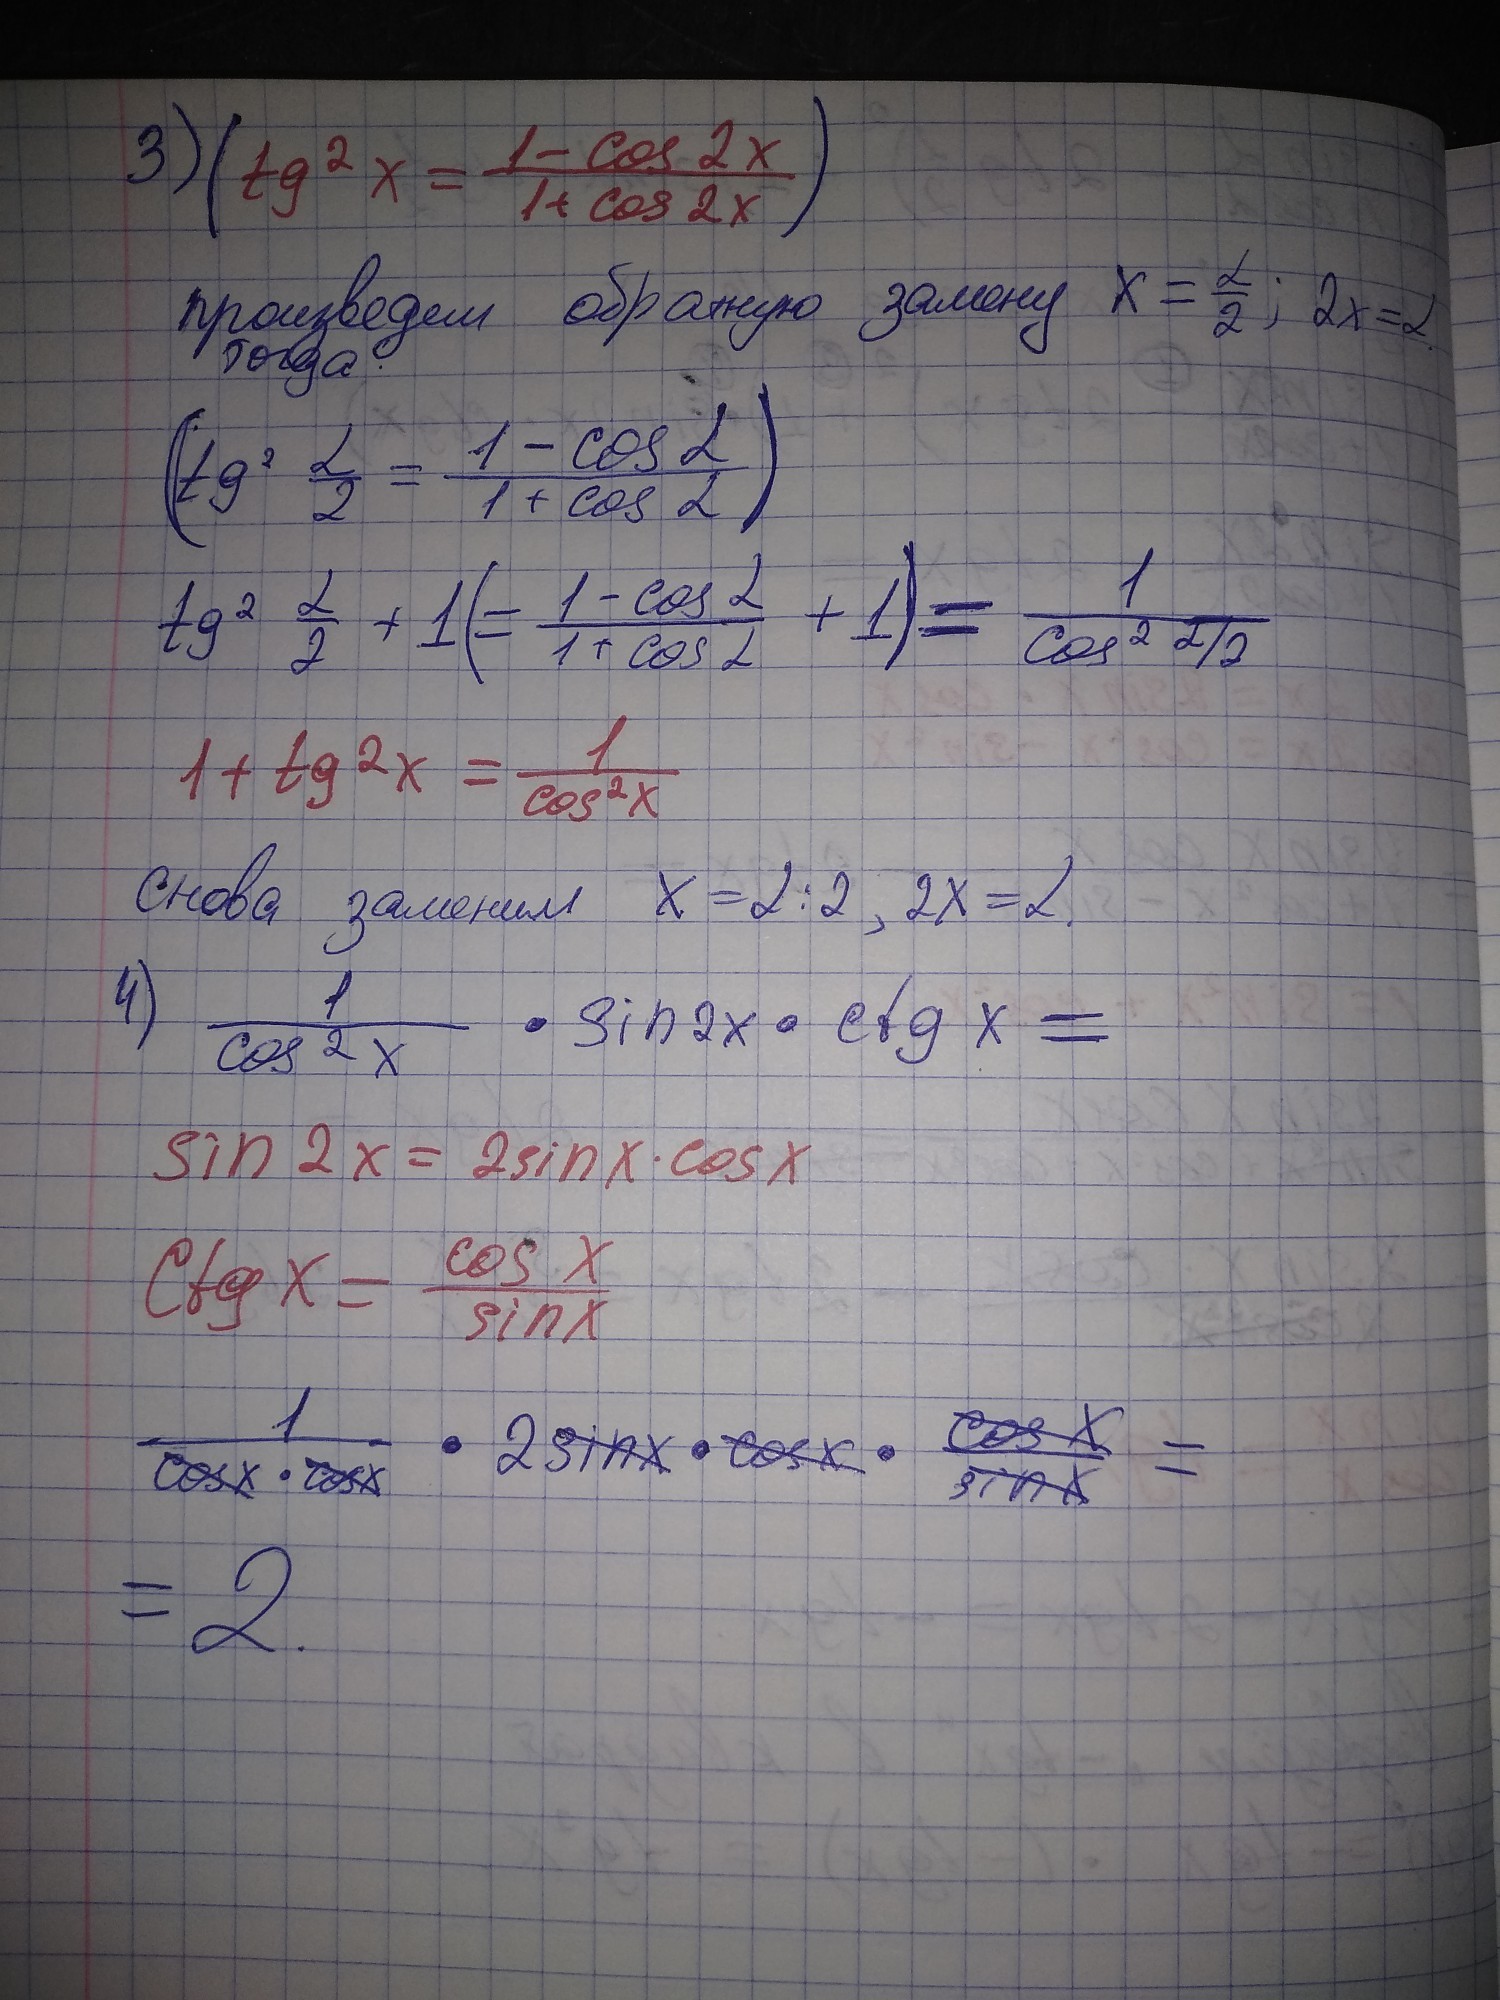 3) (tg² x = (1 - cos 2x)/(1 + cos 2x))
произведем обратную замену x = α/2; 2x = α.
тогда:
(tg² α/2 = (1 - cos α)/(1 + cos α))
tg² α/2 + 1 (= (1 - cos α)/(1 + cos α) + 1) = 1/(cos² α/2)
1 + tg² x = 1/(cos² x)
снова заменим x = α : 2, 2x = α.
4) 1/(cos² x) · sin 2x · ctg x =
sin 2x = 2 sin x · cos x
ctg x = cos x/sin x
1/(cos x · cos x) · 2 sin x · cos x · cos x/sin x =
= 2.